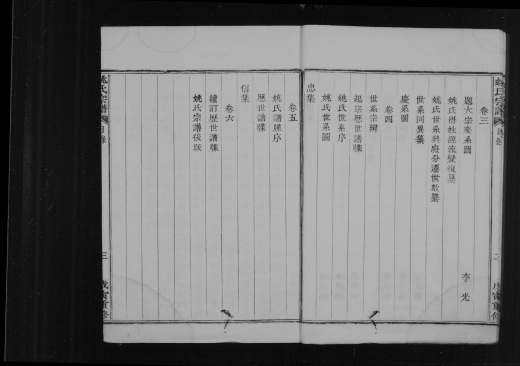 姚氏宗譜
卷三
題大宗泰系圖
李光
姚氏得姓源流變復纂
姚氏世系興廢分遷世數纂
世系同異纂
慶系圖
卷四
世系宗辯
起宗曆世譜牒
姚氏世系序
姚氏世系圖
忠集
卷五
姚氏譜牒序
歷世譜牒
信集
卷六
續訂歷世譜牒
姚氏宗譜後跋
姚氏宗譜
目錄
三
戊寅重修